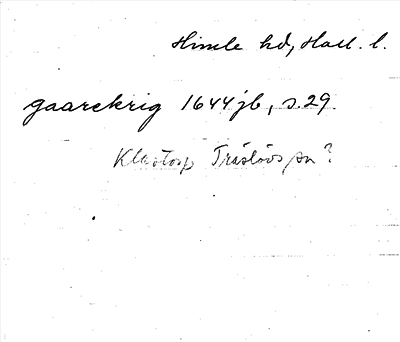 Himle hd, Hall. l.
gaarekrig 1644 jb, s. 29.
Träslövs sn?